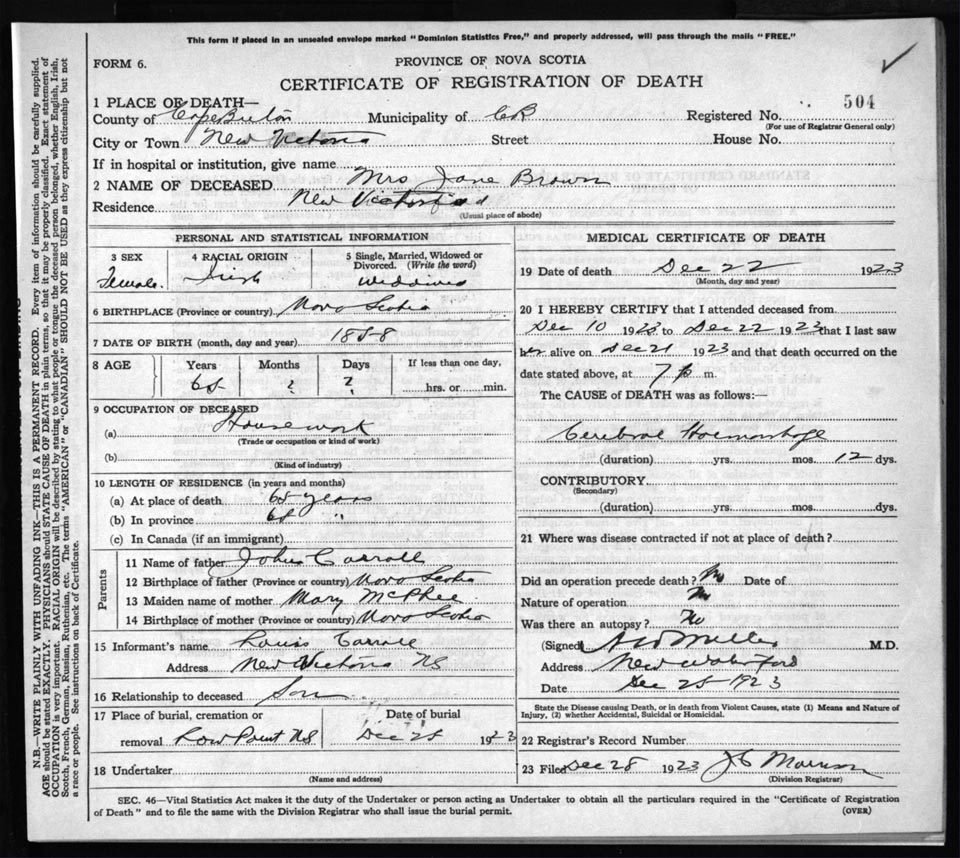 This form if placed in an unsealed envelope marked "Dominion Statistics Free," and properly addressed, will pass through the mails "FREE."
FORM 6. PROVINCE OF NOVA SCOTIA
CERTIFICATE OF REGISTRATION OF DEATH
504
1 PLACE OF DEATH—
County of Cape Breton Municipality of CB Registered No.
(For use of Registrar General only)
City or Town New Victoria Street House No.
If in hospital or institution, give name
2 NAME OF DECEASED Mrs Jane Brown
Residence New
(Usual place of abode)
PERSONAL AND STATISTICAL INFORMATION
3 SEX 4 RACIAL ORIGIN 5 Single, Married, Widowed or Divorced. (Write the word)
Female. Irish
6 BIRTHPLACE (Province or country) Nova Scotia
7 DATE OF BIRTH (month, day and year) 1858
8 AGE Years Months Days If less than one day,
? ? hrs. or min.
9 OCCUPATION OF DECEASED
(a) Housework
(Trade or occupation or kind of work)
(b)
(Kind of industry)
10 LENGTH OF RESIDENCE (in years and months)
(a) At place of death years
(b) In province "
(c) In Canada (if an immigrant)
Parents
11 Name of father John Carroll
12 Birthplace of father (Province or country) Nova Scotia
13 Maiden name of mother Mary McPhee
14 Birthplace of mother (Province or country) Nova Scotia
15 Informant's name Louis Carroll
Address New Victoria NS
16 Relationship to deceased Son
17 Place of burial, cremation or Date of burial
removal Low Point NS Dec 25 1923
18 Undertaker
(Name and address)
MEDICAL CERTIFICATE OF DEATH
19 Date of death Dec 22 1923
(Month, day and year)
20 I HEREBY CERTIFY that I attended deceased from
Dec 10 1923 to Dec 22 1923 that I last saw
her alive on Dec 21 1923 and that death occurred on
date stated above, at 7 p m.
The CAUSE of DEATH was as follows:—
Cerebral Hoemorrhage
(duration) yrs. mos. 12 dys.
CONTRIBUTORY
(Secondary)
(duration) yrs. mos. dys.
21 Where was disease contracted if not at place of death?
Did an operation precede death? No Date of
Nature of operation No
Was there an autopsy? No
(Signed) Miller M.D.
Address New Waterford
Date Dec 25 1923
State the Disease causing Death, or in death from Violent Causes, state (1) Means and Nature of
Injury, (2) whether Accidental, Suicidal or Homicidal.
22 Registrar's Record Number
23 Filed Dec 28 1923 Morrison
(Division Registrar)
SEC. 46—Vital Statistics Act makes it the duty of the Undertaker or person acting as Undertaker to obtain all the particulars required in the "Certificate of Registration
of Death" and to file the same with the Division Registrar who shall issue the burial permit. (OVER)
N.B.—WRITE PLAINLY WITH UNFADING INK—THIS IS A PERMANENT RECORD. Every item of information should be carefully supplied.
AGE should be stated EXACTLY. PHYSICIANS should STATE CAUSE OF DEATH in plain terms, so that it may be properly classified. Exact statement of
OCCUPATION is very important. RACIAL ORIGIN will be described by stating to what people or tongue the deceased person belonged, whether English, Irish,
Scotch, French, German, Russian, Ruthenian, etc. The terms "AMERICAN" or "CANADIAN" SHOULD NOT BE USED as they express citizenship but not
a race or people. See instructions on back of Certificate.